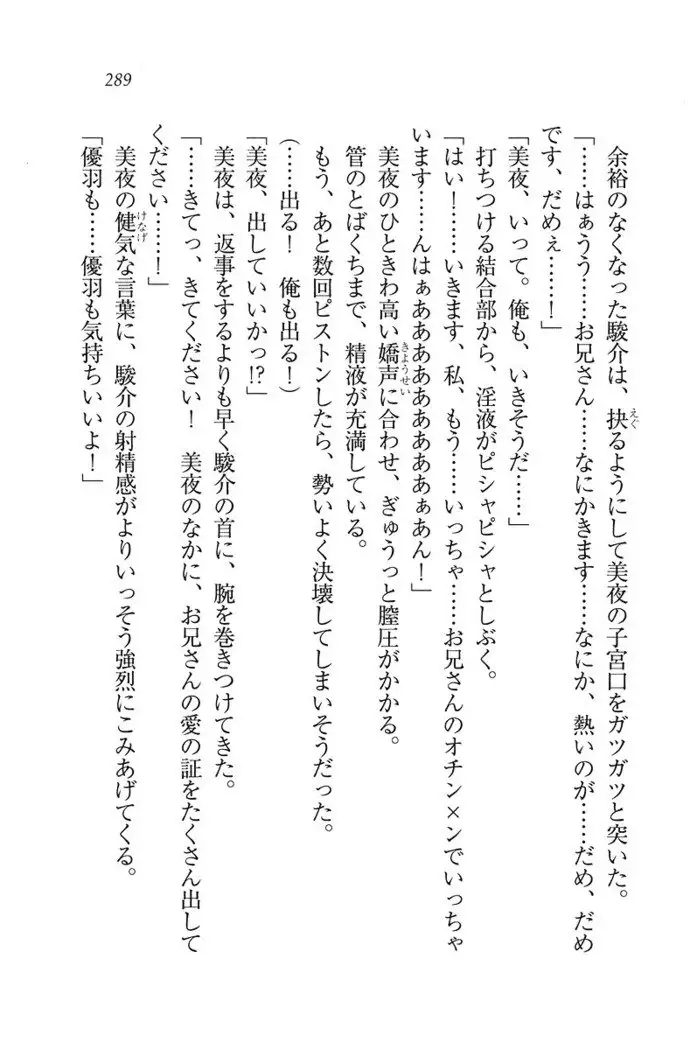 289
余裕のなくなった駿介は、抉るようにして美夜の子宮口をガツガツと突いた。
「……はぁうう……お兄さん……なにかきます……なにか、熱いのが……だめ、だめ
です、だめぇ……！」
「美夜、いって。俺も、いきそうだ……」
打ちつける結合部から、淫液がピシャピシャとしぶく。
「はい！……いきます、私、もう……いっちゃ……お兄さんのオチン×ンでいっちゃ
います……んはぁああああああああぁあん！」
美夜のひときわ高い嬌声に合わせ、ぎゅうっと膣圧がかかる。
管のとばくちまで、精液が充満している。
もう、あと数回ピストンしたら、勢いよく決壊してしまいそうだった。
（……出る！　俺も出る！）
「美夜、出していいかっ!?」
美夜は、返事をするよりも早く駿介の首に、腕を巻きつけてきた。
「……きてっ、きてください！　美夜のなかに、お兄さんの愛の証をたくさん出して
ください……！」
美夜の健気な言葉に、駿介の射精感がよりいっそう強烈にこみあげてくる。
「優羽も……優羽も気持ちいいよ！」